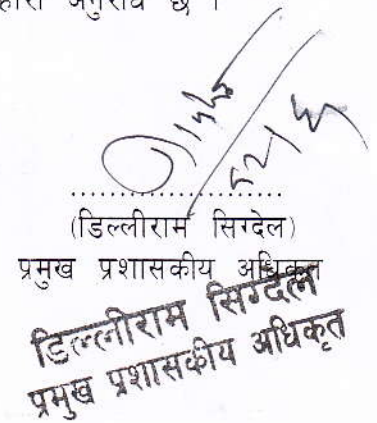 अनुरोध छ ।
....................................
(डिल्लीराम सिग्देल)
प्रमुख प्रशासकीय अधिकृत
डिल्लीराम सिग्देल
प्रमुख प्रशासकीय अधिकृत